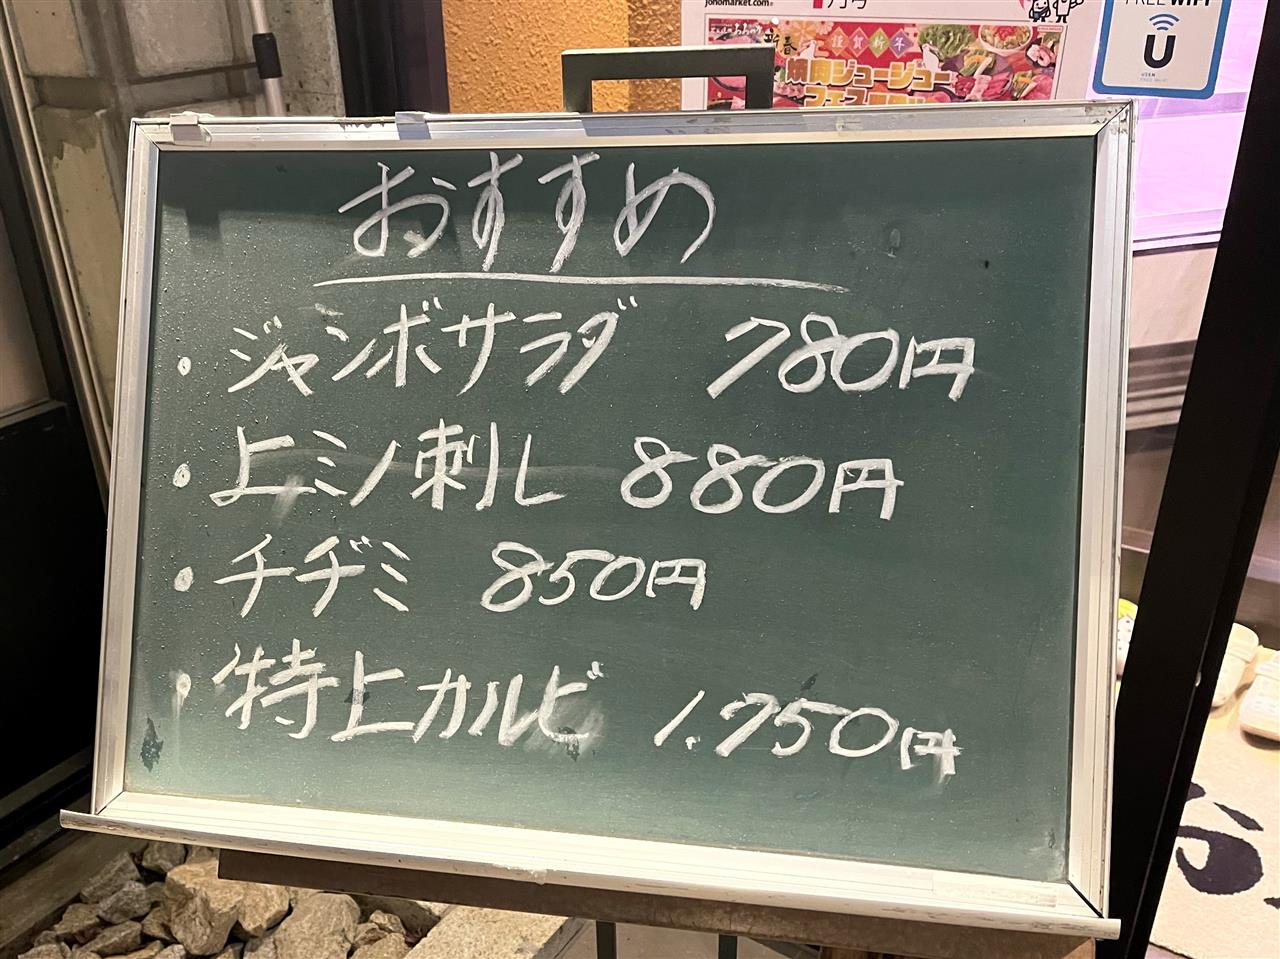 johomarket.com
月号
FREE WiFi
新春
謹賀新年
焼肉ジュージュー
フェス
U
USEN
おすすめ
・ジャンボサラダ 780円
・上ミノ刺し 880円
・チヂミ 850円
・特上カルビ 1.750円